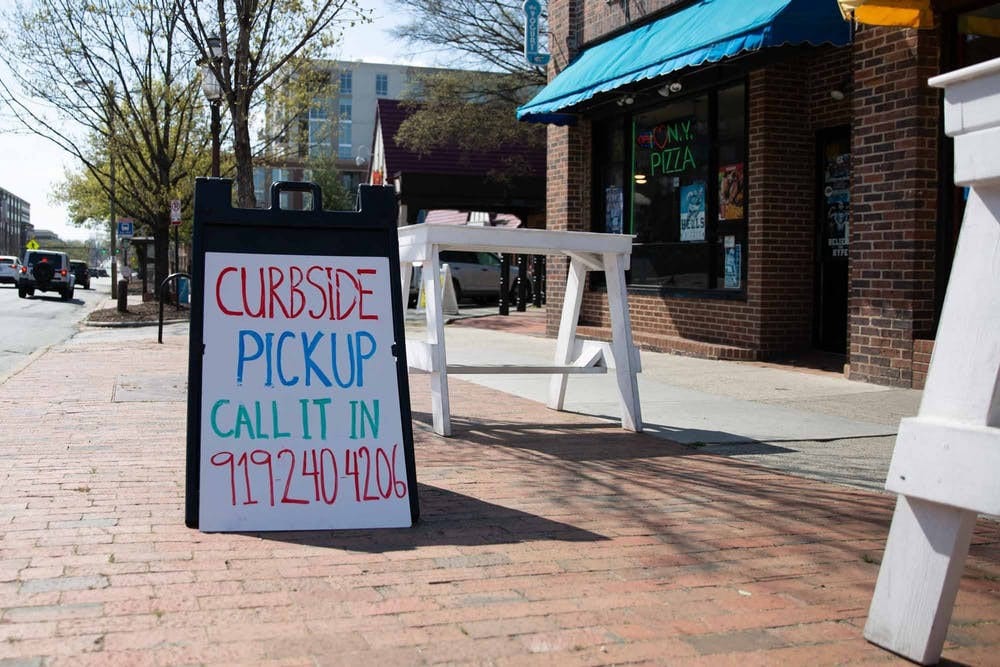 CURBSIDE
PICKUP
CALL IT IN
919-240-4206
I ♥ N.Y.
PIZZA